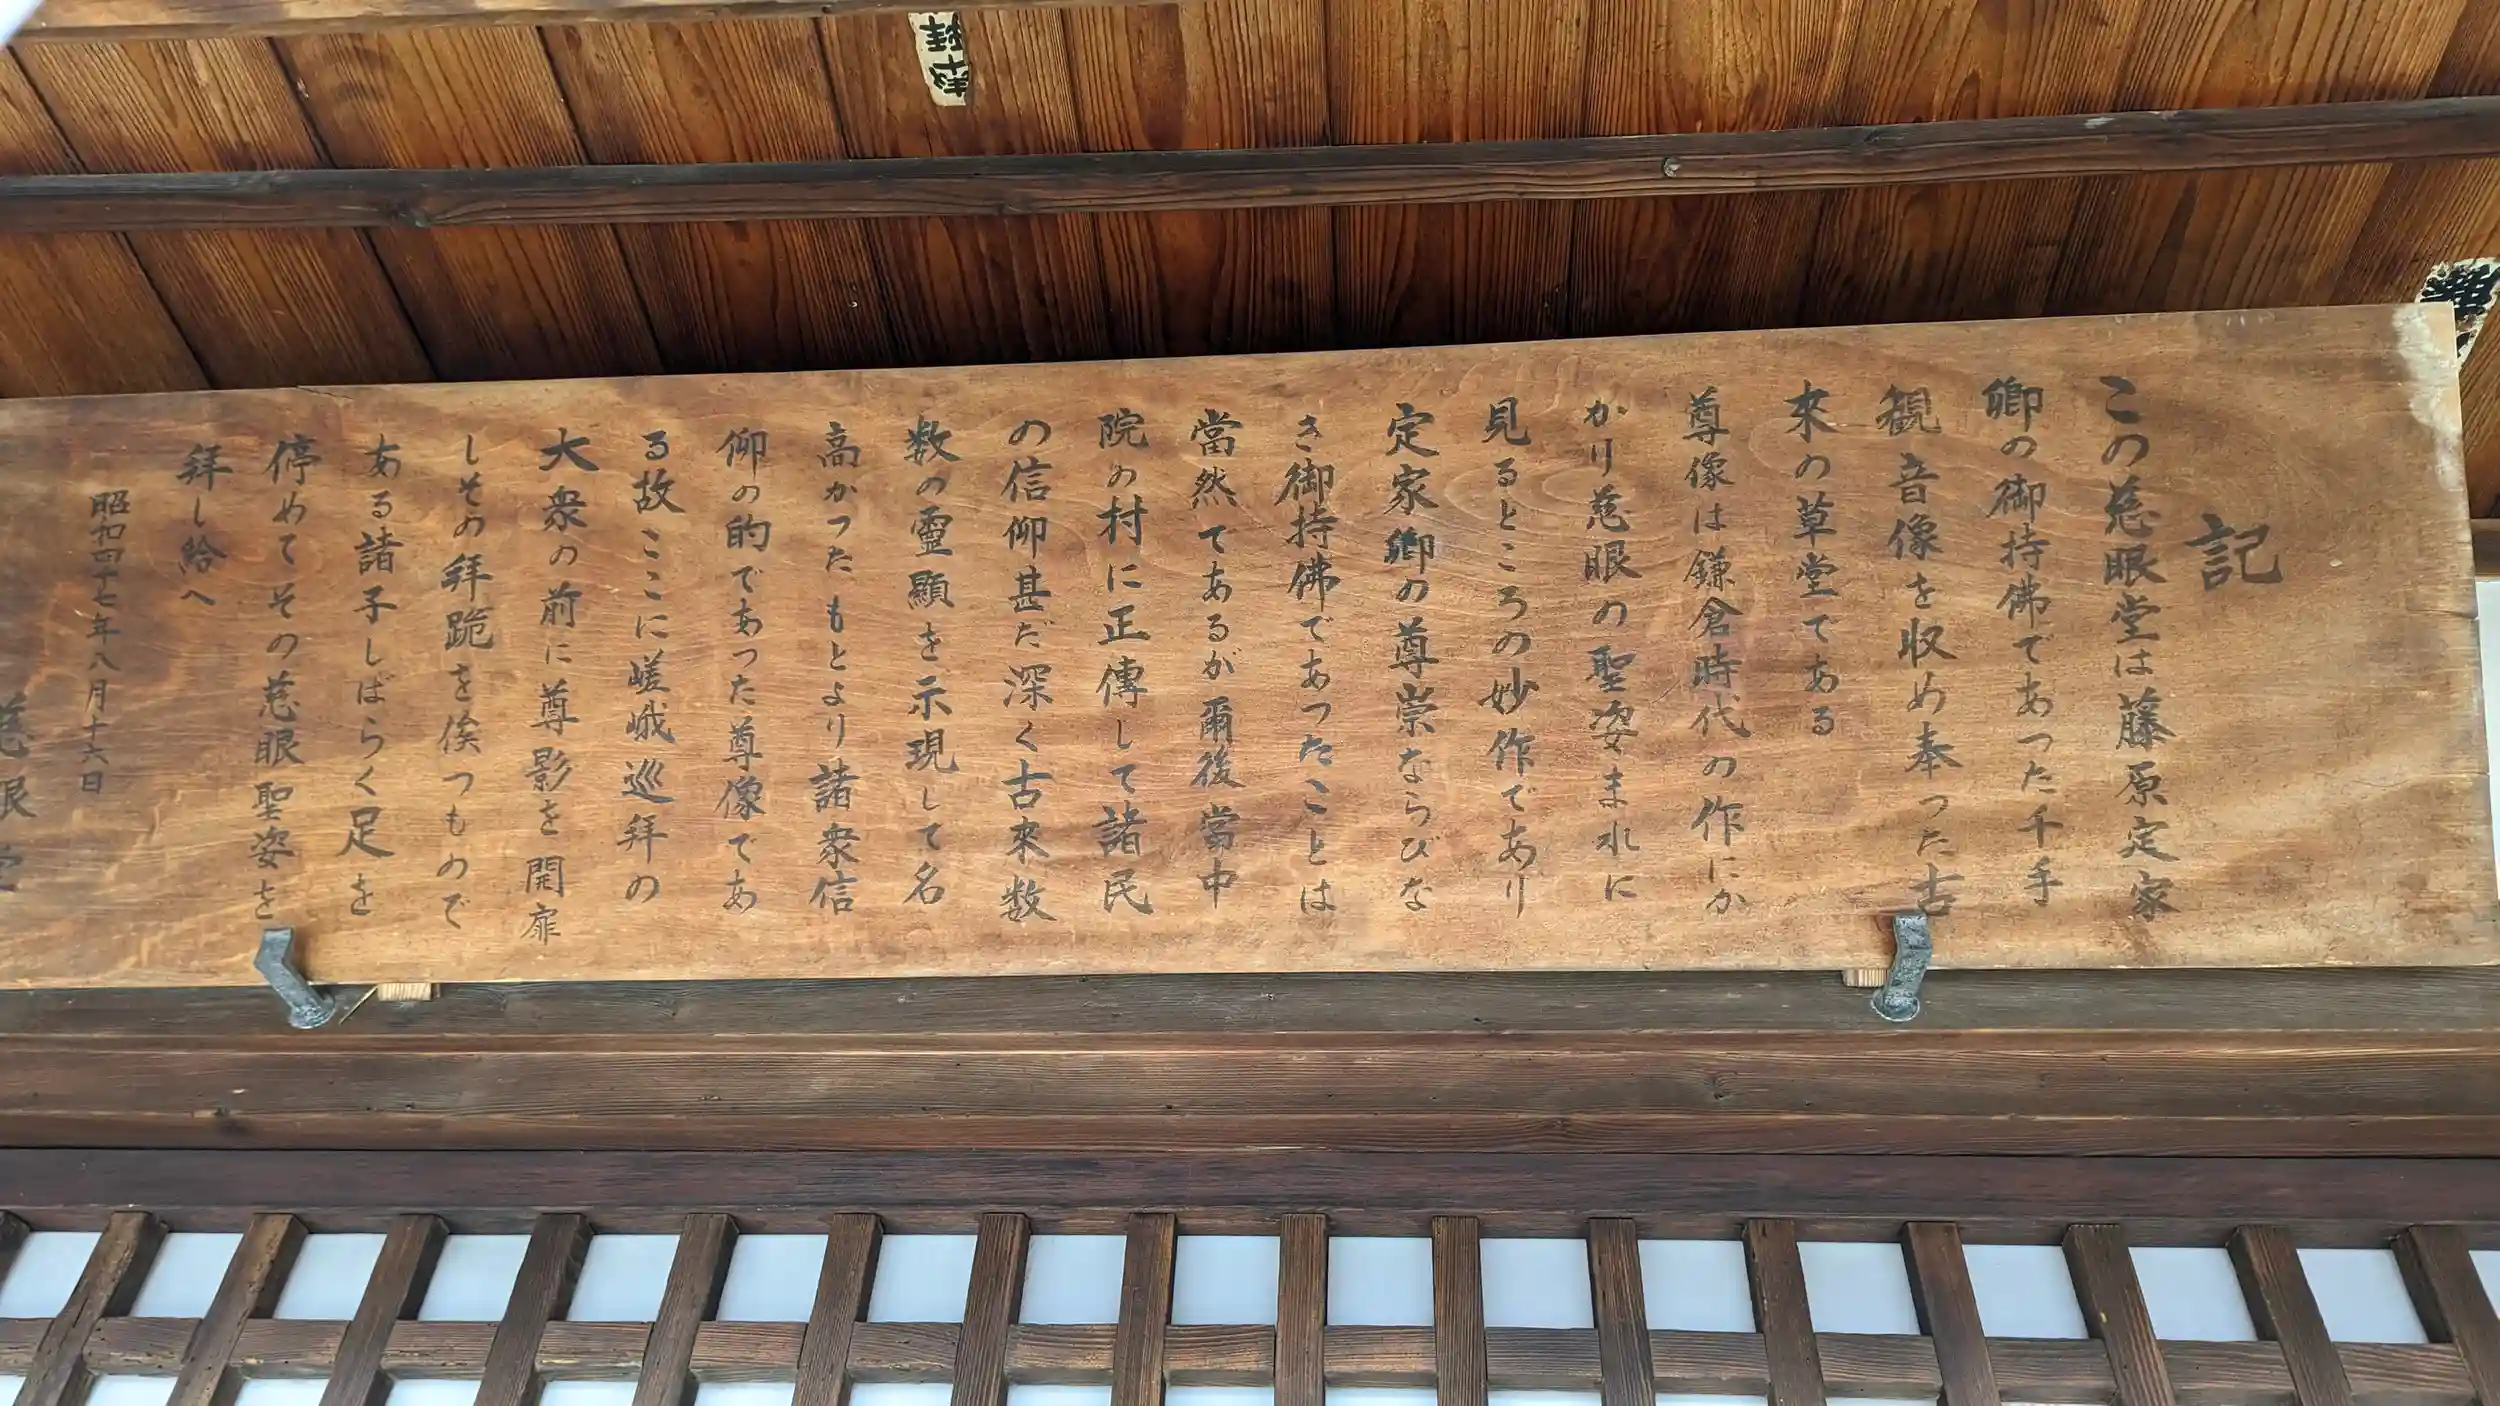 記
この慈眼堂は藤原定家
卿の御持佛であつた千手
観音像を収め奉つた古
來の草堂である
尊像は鎌倉時代の作にか
かり慈眼の聖姿まれに
見るところの妙作であり
定家卿の尊崇ならびな
き御持佛であつたことは
當然てあるが爾後當中
院の村に正傳して諸民
の信仰甚だ深く古來数
数の霊顯を示現して名
高かつた もとより諸衆信
仰の的であつた尊像であ
る故ここに嵯峨巡拜の
大衆の前に尊影を開扉
しその拜跪を俟つもので
ある諸子しばらく足を
停めてその慈眼聖姿を
拜し給へ
昭和四十七年八月十六日
慈眼堂